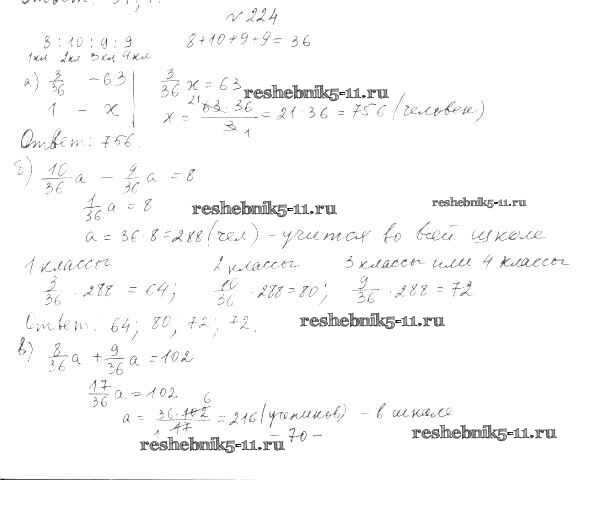 № 224
3 : 10 : 9 : 9   8+10+9+9=36
1кл 2кл 3кл 4кл
а) 3/36 – 63   3/36 x = 63   reshebnik5-11.ru
1 – x   x = 63·36/3 = 21·36 = 756 (человек)
21 1
Ответ: 756.
б) 10/36 a – 9/36 a = 8
1/36 a = 8   reshebnik5-11.ru   reshebnik5-11.ru
a = 36·8=288(чел) – учится во всей школе
1 классы   2 классы   3 классы или 4 классы
3/36 · 288 = 64;   10/36 · 288=80;   9/36 · 288 = 72
Ответ: 64; 80, 72; 72.   reshebnik5-11.ru
в) 8/36 a + 9/36 a = 102
17/36 a = 102
a = 36·102/17 = 216 (учеников) – в школе
6 1
reshebnik5-11.ru   – 70 –   reshebnik5-11.ru